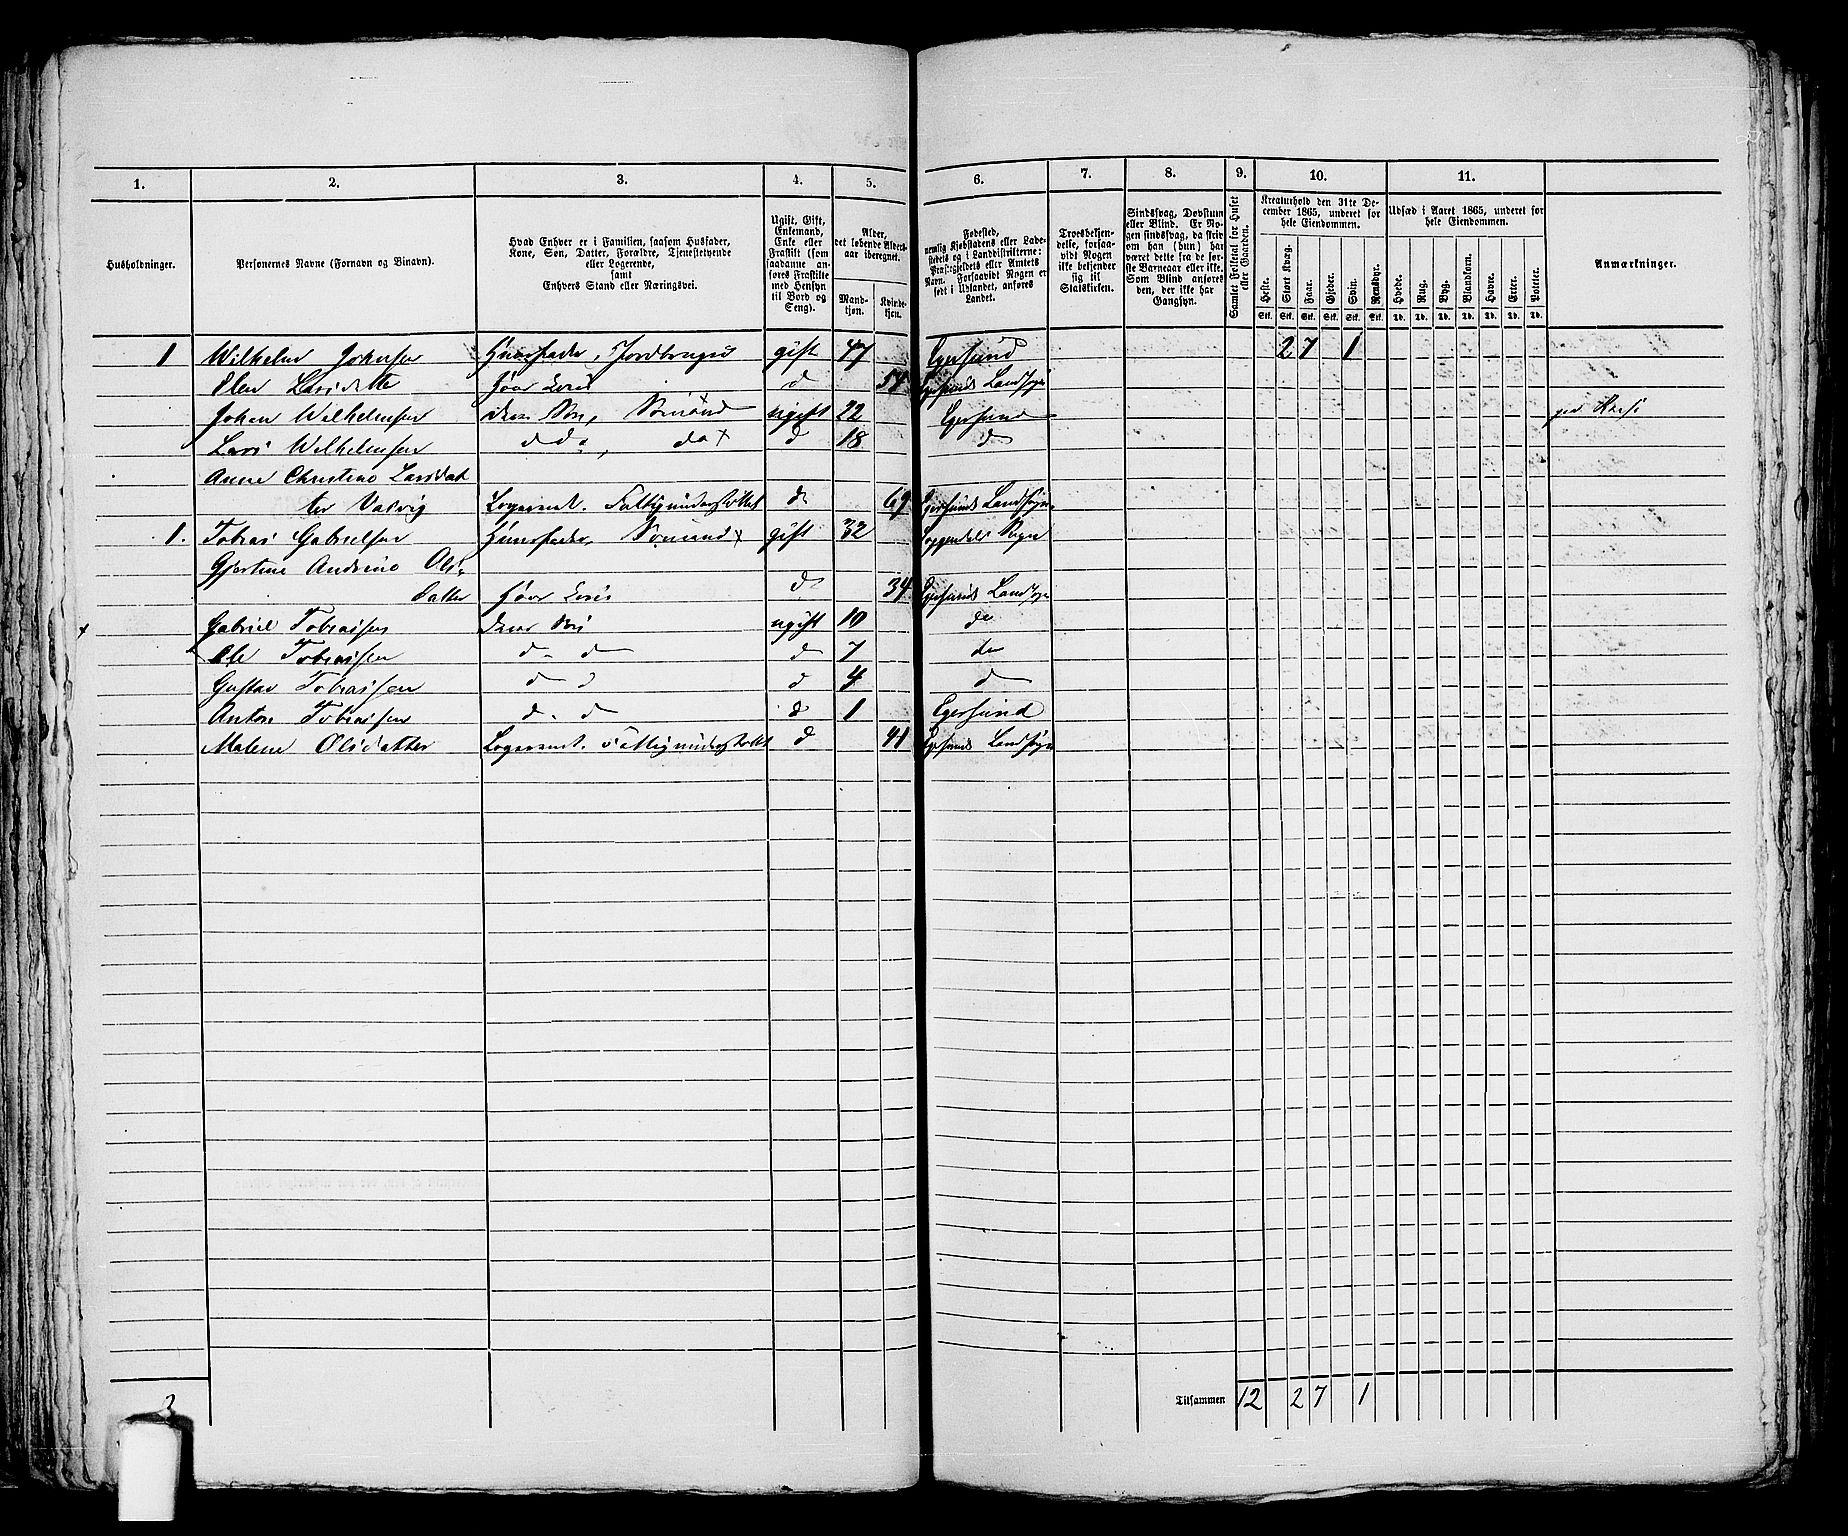 1. 2. 3. 4. 5. 6. 7. 8. 9. 10. 11.
Husholdninger.
Personernes Navne (Fornavn og Binavn).
Hvad Enhver er i Familien, saasom Husfader, Kone, Søn, Datter, Forældre, Tjenestetyende eller Logerende, samt Enhvers Stand eller Næringsvei.
Ugift, Gift, Enkemand, Enke eller Fraskilt (som saadanne anføres Fraskilte med Hensyn til Bord og Seng).
Alder, det løbende Aldersaar iberegnet.
Mandkjøn. Kvindekjøn.
Fødested, nemlig Kjøbstadens eller Ladestedets og i Landdistrikterne: Præstegjeldets eller Amtets Navn. Forsaavidt Nogen er født i Udlandet, anføres Landet.
Troesbekjendelse, forsaavidt Nogen ikke bekjender sig til Statskirken.
Sindssvag, Døvstum eller Blind. Er Nogen sindssvag, da skrives om han (hun) har været dette fra de første Barneaar eller ikke. Som Blind anføres den, der ikke har Gangsyn.
Samlet Folketal for Huset eller Gaarden.
Kreaturhold den 31te December 1865, underet for hele Eiendommen.
Heste. Stort Kvæg. Faar. Gjeder. Svin. Rensdyr.
Stk. Stk. Stk. Stk. Stk. Stk.
Udsæd i Aaret 1865, underet for hele Eiendommen.
Hvede. Rug. Byg. Blandkorn. Havre. Erter. Poteter.
Td. Td. Td. Td. Td. Td. Td.
Anmærkninger.
1 Wilhelm Johnsen Huusfader, Jordbruger gift 47 Egersund 2 7 1
Elen Larsdatter d 54 Egersunds Landsogn
Johan Wilhelmsen Søn, Sømand ugift 22 Egersund
Lars Wilhelmsen d 18 d
Anne Christine Larsdat
ter Logerende. Fattigunderstøttet d 69 Egersunds Landsogn
1. Tobias Gabrielsen Huusfader, Sømand x gift 32 Sogn
Gjertine Andrine Ols-
datter d 34 Egersunds Landsogn
Gabriel Tobiassen ugift 10 do
Ole Tobiassen d d d 7 do
Gustav Tobiassen d d d 4 d
Anton Tobiassen d d d 1 Egersund
Malene Olsdatter Logerende. Fattigunderstøttet d 41 Egersunds Landsogn
Tilsammen 12 2 7 1